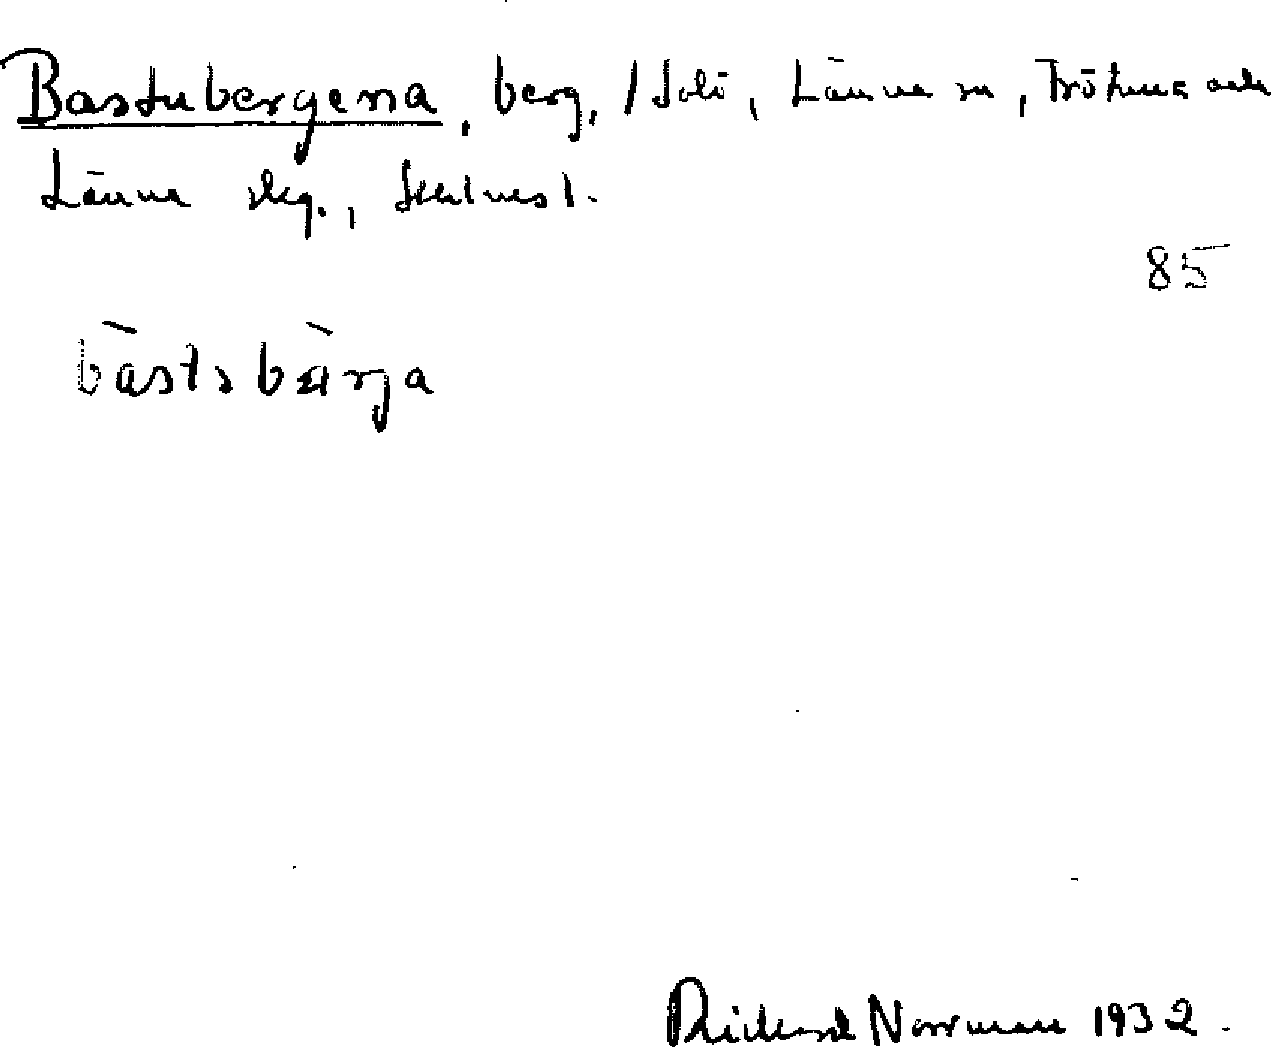 Bastubergena, berg, / Solö, Länna sn, Frötuna och
Länna skg.,
85
bàstsbàrja
Rickard Norrman 1932.